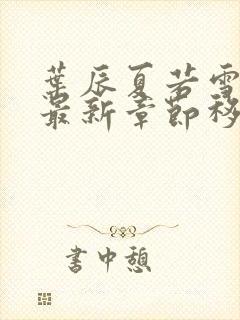 葉辰夏若雪
最新章節移
書中憩